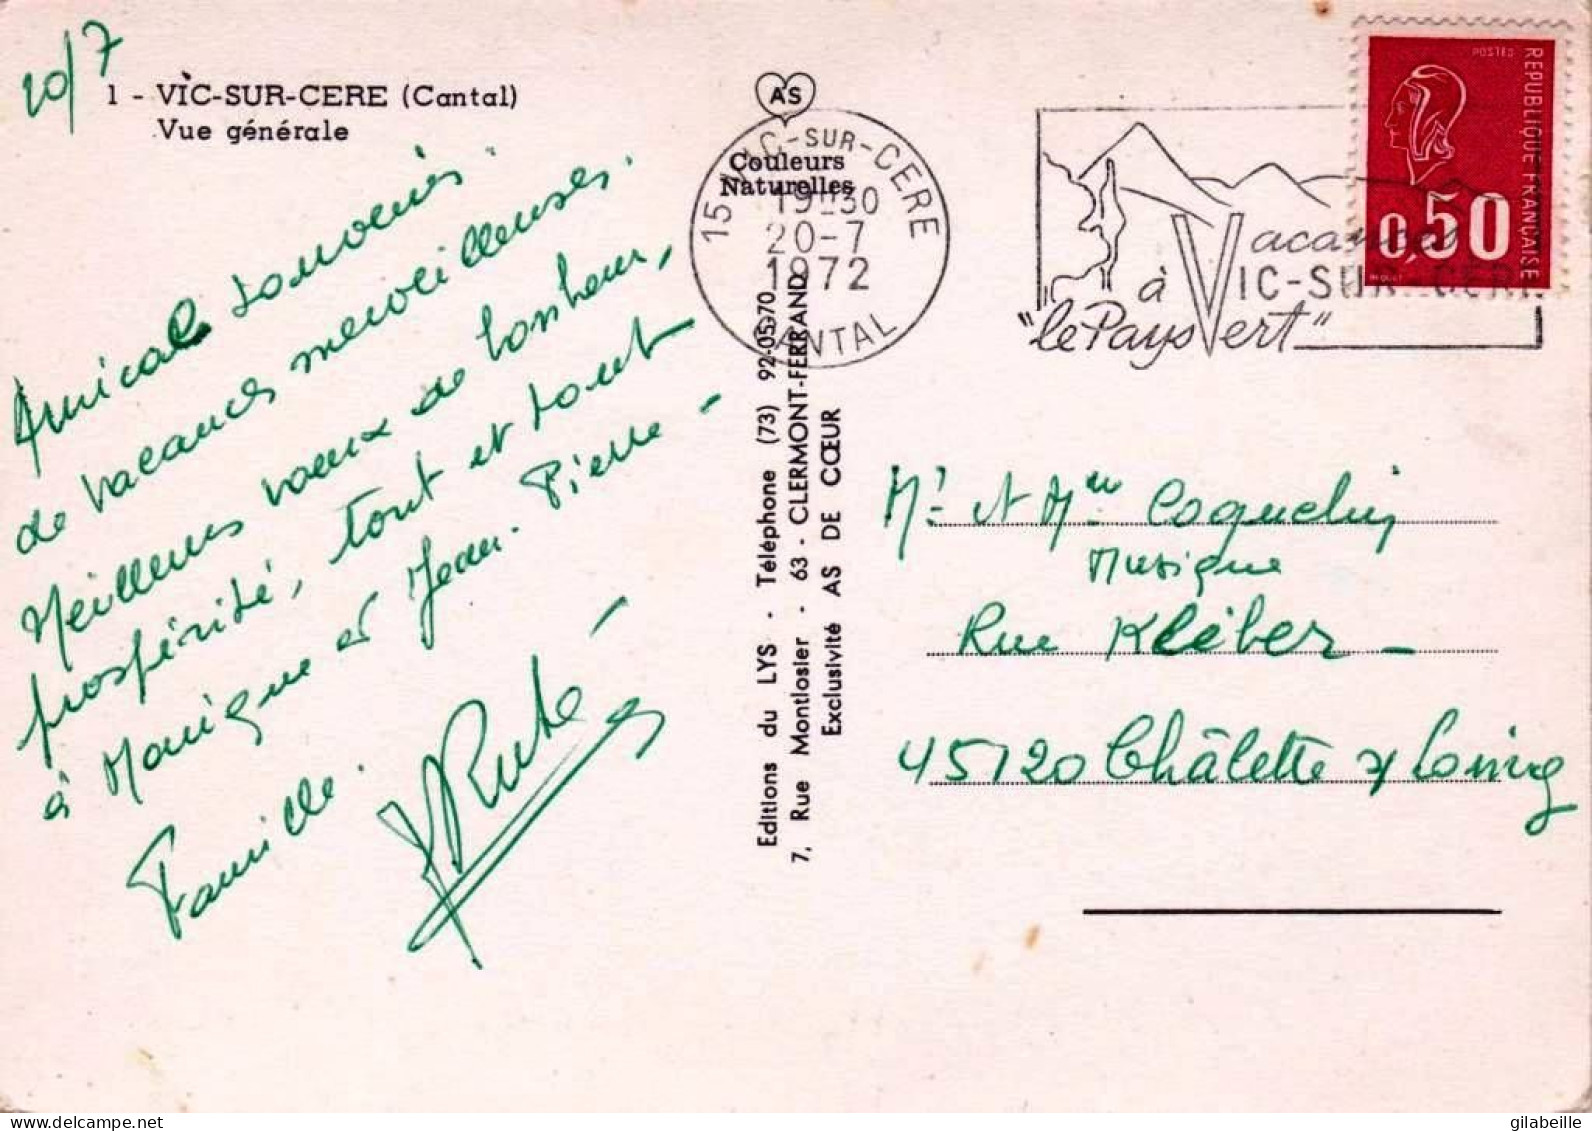 20/7
1 - VIC-SUR-CERE (Cantal)
Vue générale
Amicals souvenirs
de vacances merveilleuses.
Meilleurs vœux de bonheur,
prospérité, tout et tout
à Monique et Jean-Pierre -
Famille.
AS
Couleurs
Naturelles
15 VIC-SUR-CERE
19H30
20-7
1972
CANTAL
Editions du LYS - Téléphone (73) 92-05-70
7, Rue Montlosier - 63 - CLERMONT-FERRAND
Exclusivité AS DE CŒUR
Vacances
à VIC-SUR-CERE
"le Pays Vert"
POSTES
REPUBLIQUE FRANÇAISE
0,50
Mr et Mme Coquelin
Musique
Rue Kléber -
45120 Châlette s/ Loing
gilabeille